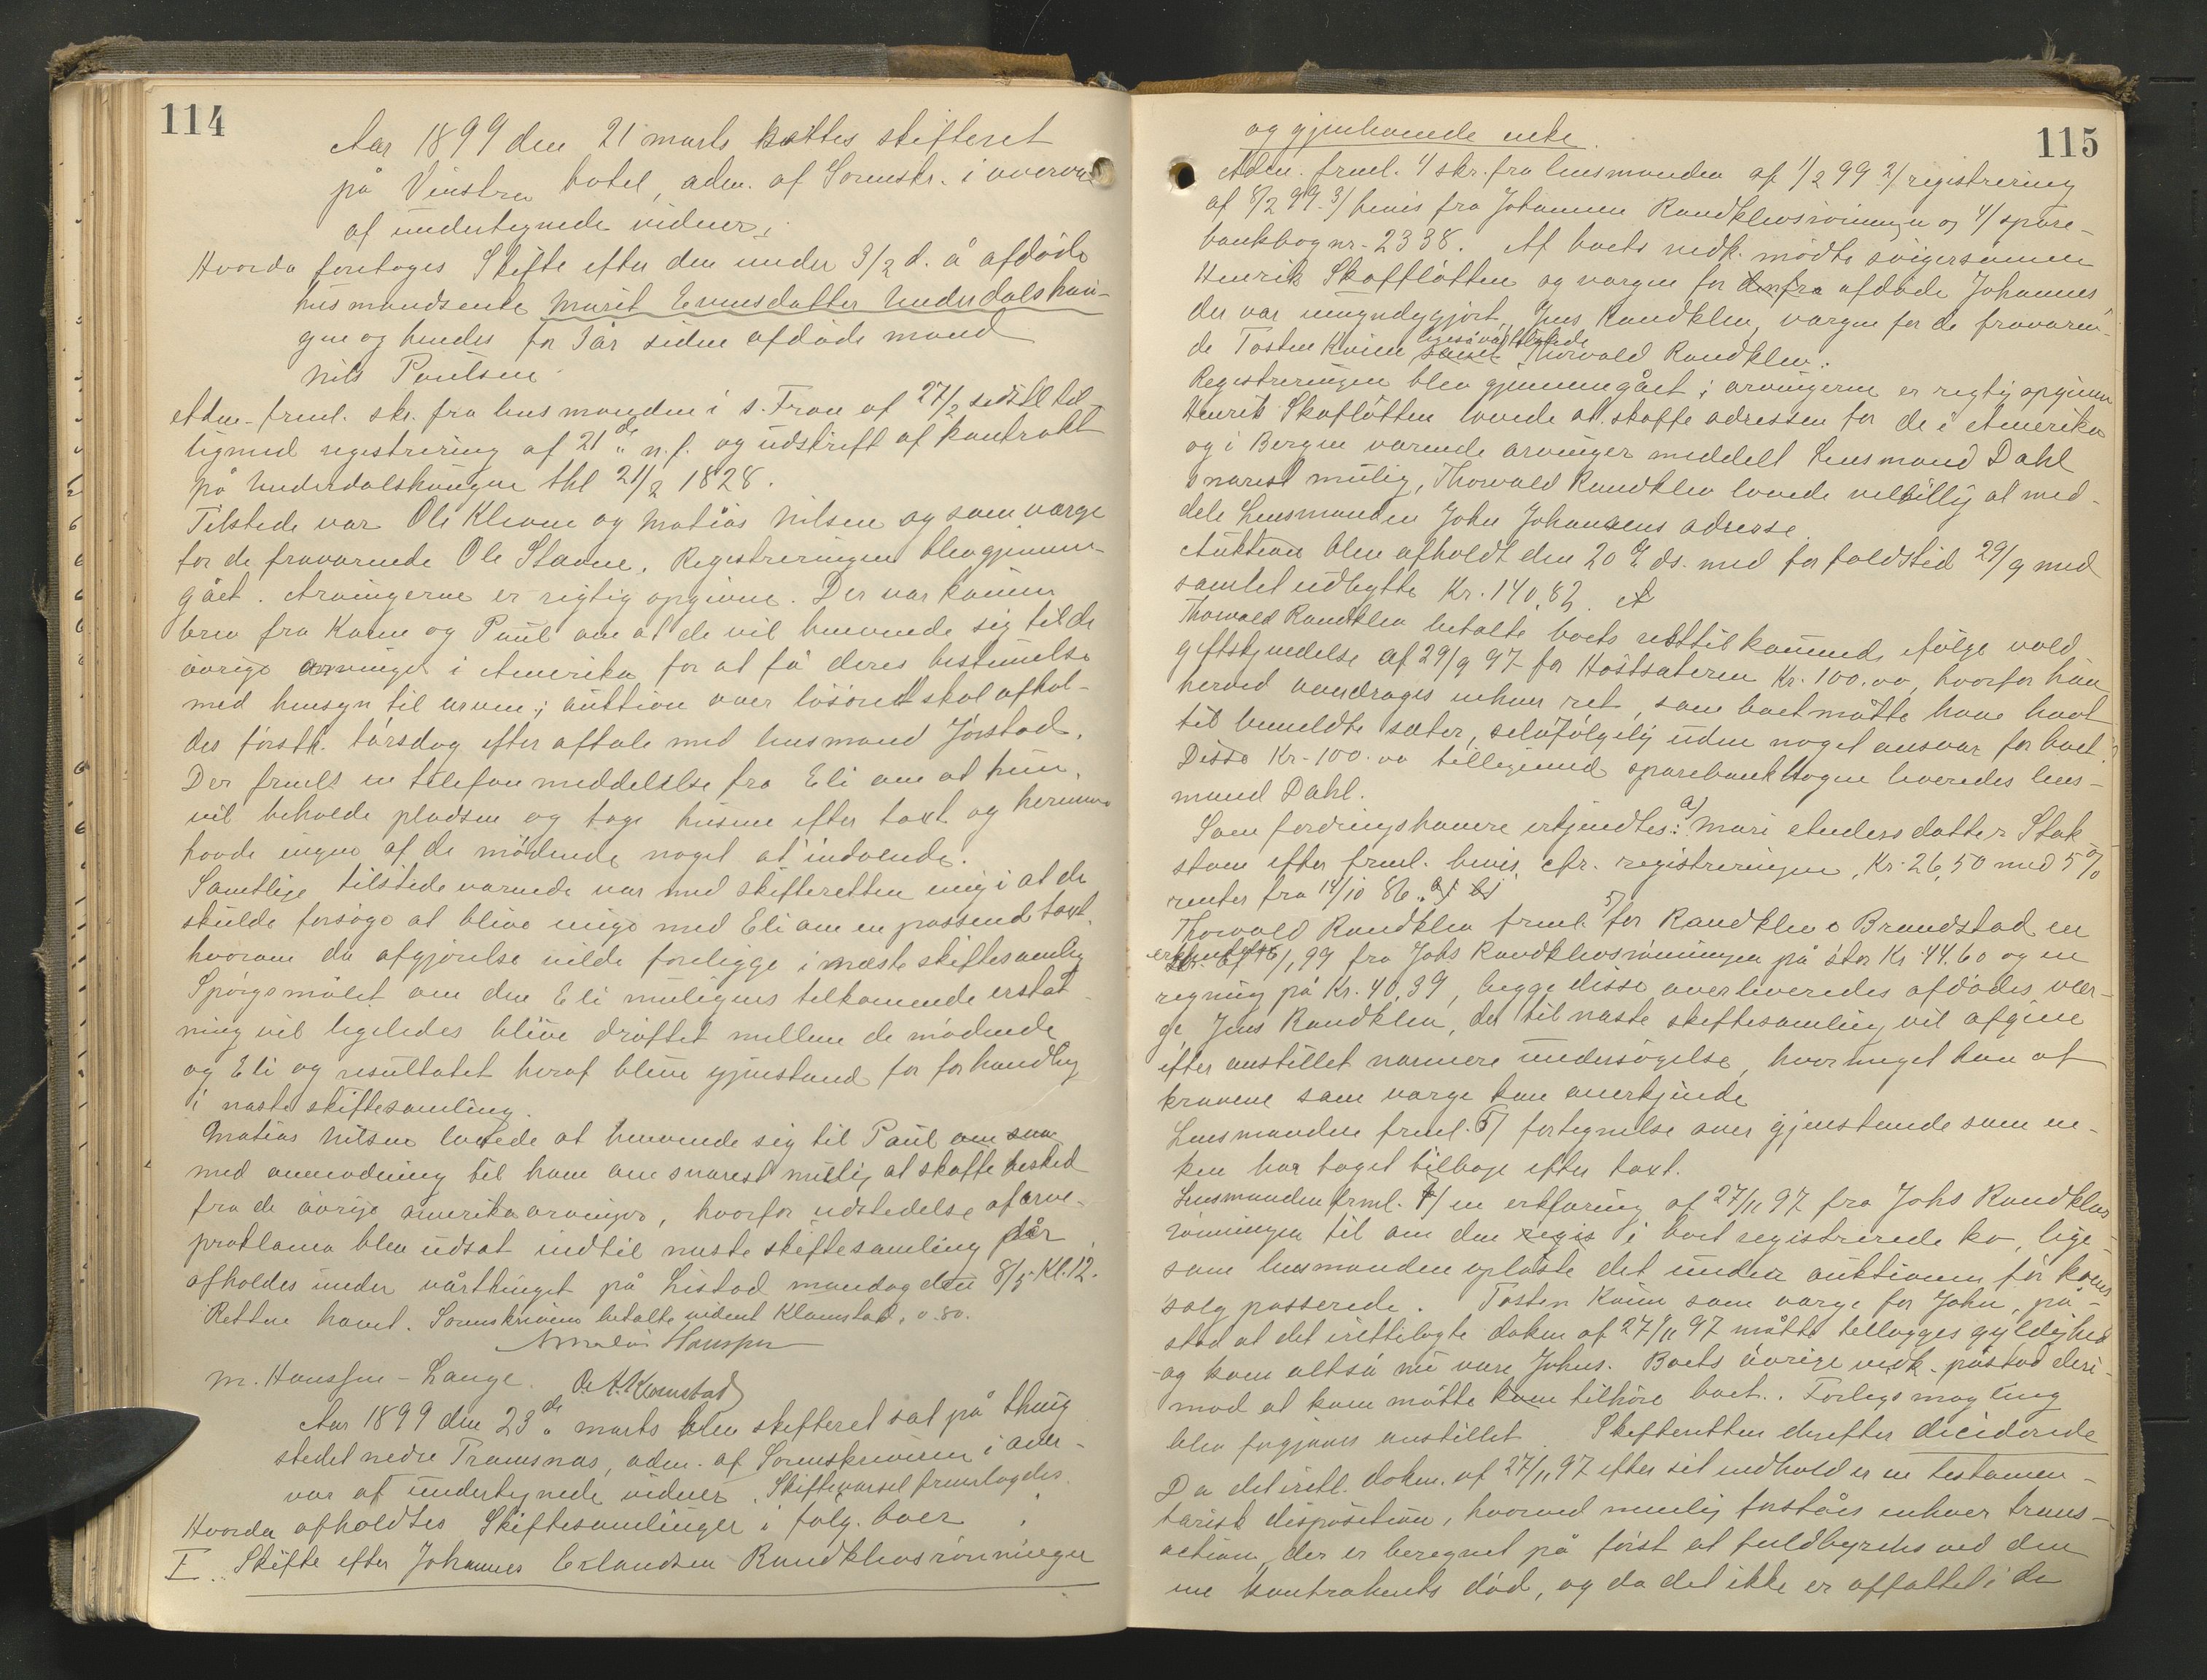 114
Aar 1899 den 21 marts sattes skifteret
på Vinstra hotel, adm. af Sorenskr. i overvær
af undertegnede vidner.
Hvorda foretoges Skifte efter den under 3/2 d. å afdöde
husmandsenke Marit Evensdatter Underdalshau-
gen og hendes for 7 år siden afdöde mand
Nils Paulsen
Adm. freml. skr. fra lensmanden i s. Fron af 27/2 sidstl til-
ligmed registrering af 21de n.f. og udskrift af kontrakt
på Underdalshaugen thl 21/2 1828.
Tilstede var Ole Klevne og Matias Nilsen og som værge
for de fraværende Ole Stavne. Registreringen blev gjennem-
gået. Arvingerne er rigtig opgivne. Der var kommen
brev fra Karen og Paul om at de vil henvende sig til de
övrige arvinger i Amerika for at få deres bestemelse
med hensyn til arven; auktion over lösöret skal afhol-
des förstk. törsdag efter aftale med lensmand Jörstad.
Der fremls en telefonmeddelelse fra Eli om at hun
vil beholde pladsen og tage husene efter taxt og herimod
havde ingen af de mödende noget at indvende.
Samtlige tilstedeværende var med skifteretten enig i at de
skulde forsöge at blive enige med Eli om en passend taxt,
hvorom da afgjörelse vilde foreligge i næste skiftesamling
Spörgsmålet om den Eli muligens tilkommende erstat-
ning vil ligeledes blive dröftet mellem de mödende
og Eli og resultatet heraf blive gjenstand for forhandling
i næste skiftesamling.
Matias Nilsen lovede at henvende sig til Paul om snar
med anmodning til ham om snarest mulig at skaffe besked
fra de övrige amerika arvinger, hvorfor udstedelse af arve-
proklama blev udsat indtil næste skiftesamling der
afholdes under vårthinget på Listad mandag den 8/5 Kl. 12.
Retten hævet. Sorenskriveren betalte vidnet Klomstad, 0.80.
M. Hanssen-Lange. O. K. Klomstad
Aar 1899 den 23de marts blev skifteret sat på thing
stedet nedre Tramsnæs, adm. af Sorenskriveren i over-
vær af undertegnede vidner. Skiftevarsel fremlagdes.
Hvorda afholdtes Skiftesamlinger i fölg. boer
I. Skifte efter Johannes Erlandsen Randklevsrönningen
115
og gjenlevende enke.
Adm. freml. 1 skr. fra lensmanden af 1/2 99 2/ registrering
af 8/2 99. 3/ bevis fra Johannes Randklevsrönningen og 4/ spare-
bankbog nr. 2338. Af boets vedk. mödte svigersönnen
Henrik Skaflötten og værgen for den fra afdöde Johannes
der var umyndiggjort, Jens Randklev, værgen for de fraværen-
de Tosten Kvien samt Thorvald Randklev.
Registreringen blev gjennemgået; arvingerne er rigtig opgivne
Henrik Skaflötten lovede at skaffe adressen for de i Amerika
og i Bergen værende arvinger meddelt Lensmand Dahl
snarest mulig, Thorvald Randklev lovede velvillig at med-
dele Lensmanden John Johansens adresse.
Auktion blev afholdt den 20de ds. med forfaldstid 29/9 med
samlet udbytte Kr. 140,82. A
Thorvald Randklev betalte boets resttilkommende ifölge vold
giftskjendelse af 29/9 97 for Höstsæteren Kr. 100.00, hvorfor han
herved overdrages enhver ret, som boet måtte have havt
til bemeldte sæter, selvfölgelig uden noget ansvar for boet.
Disse Kr. 100.00 tilligemed sparebankbogen leveredes lens-
mand Dahl.
Som fordringshavere erkjendtes: a) Mari Andersdatter Stak-
ston efter freml. bevis, cfr. registreringen, Kr. 26,50 med 5%
renter fra 14/10 86.
Thorvald Randklev freml. 5/ for Randklev o Brandstad en
erkjendelse af 16/1 99 fra Johs Randklevsrönningen på stor Kr 44.60 og en
regning på Kr. 40,39, begge disse overleveredes afdödes vær-
ge Jens Randklev, der til næste skiftesamling vil afgive
efter anstillet nærmere undersögelse, hvor meget han af
kravene som værge kan anerkjende
Lensmanden freml. 6/ fortegnelse over gjenstande som en-
ken har taget tilbage efter taxt.
Lensmanden freml. 7/ en erklæring af 27/11 97 fra Johs Randklevs
rönningen til om den regis i boet registrerede ko, lige-
som lensmanden oplæste det under auktionen för koens
salg passerede. Tosten Kvien som værge for John, på-
stod at det irettelagte dokm af 27/11 97 måtte tillægges gyldighed
og koen altså nu være Johns. Boets övrige vedk. påstod deri-
mod at koen måtte koen tilhöre boet. Forligsmægling
blev forgjæves anstillet. Skifteretten derefter deciderede
Da det iretl. dokm. af 27/11 97 efter sit indhold er en testamen-
tarisk disposition, hvorved nemlig forståes enhver trans-
action, der er beregnet på först at fuldbyrdes ved den
ene kontrahents död, og da det ikke er affattet i de